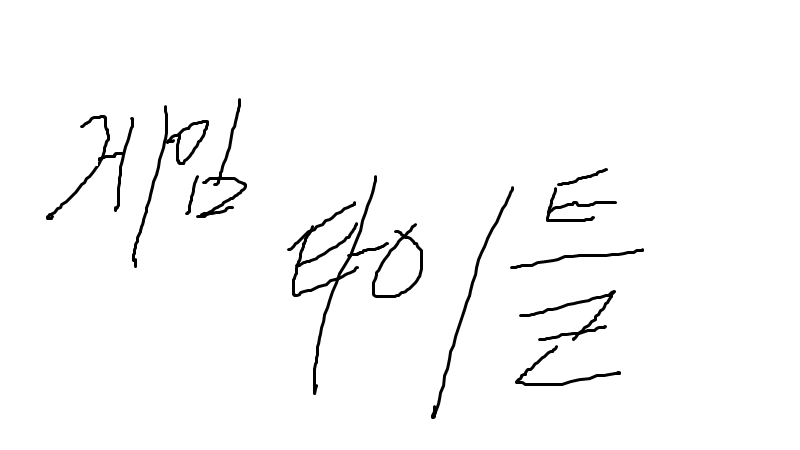 게임
타이틀